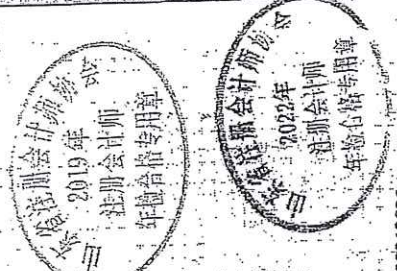 山东省注册会计师协会
2019年
注册会计师
年检合格专用章
山东省注册会计师协会
2022年
注册会计师
年检合格专用章